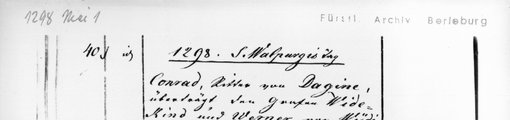 1298 Mai 1
Fürstl. Archiv Berleburg
40
1298. S. Walpurgis tag
Conrad, Ritter von Dagine,
überträgt den Grafen Wide-
kind und Werner von